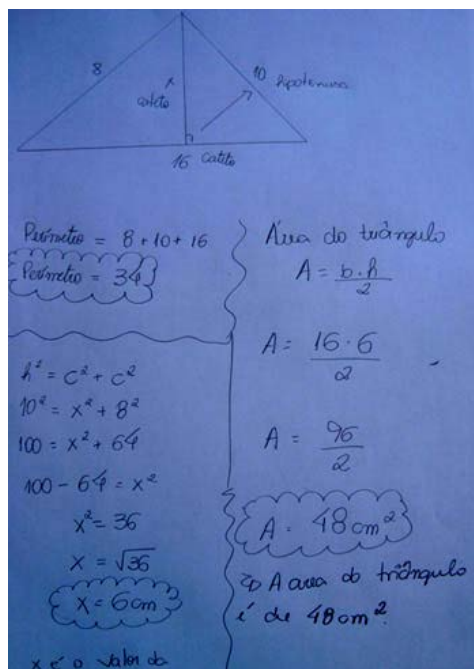 8
x
cateto
10
hipotenusa
16 cateto
Perímetro = 8 + 10 + 16
Perímetro = 34
h² = c² + c²
10² = x² + 8²
100 = x² + 64
100 - 64 = x²
x² = 36
x = √36
x = 6cm
x é o valor da
Área do triângulo
A = b.h
2
A = 16 . 6
2
A = 96
2
A = 48cm²
A area do triângulo
é de 48cm².